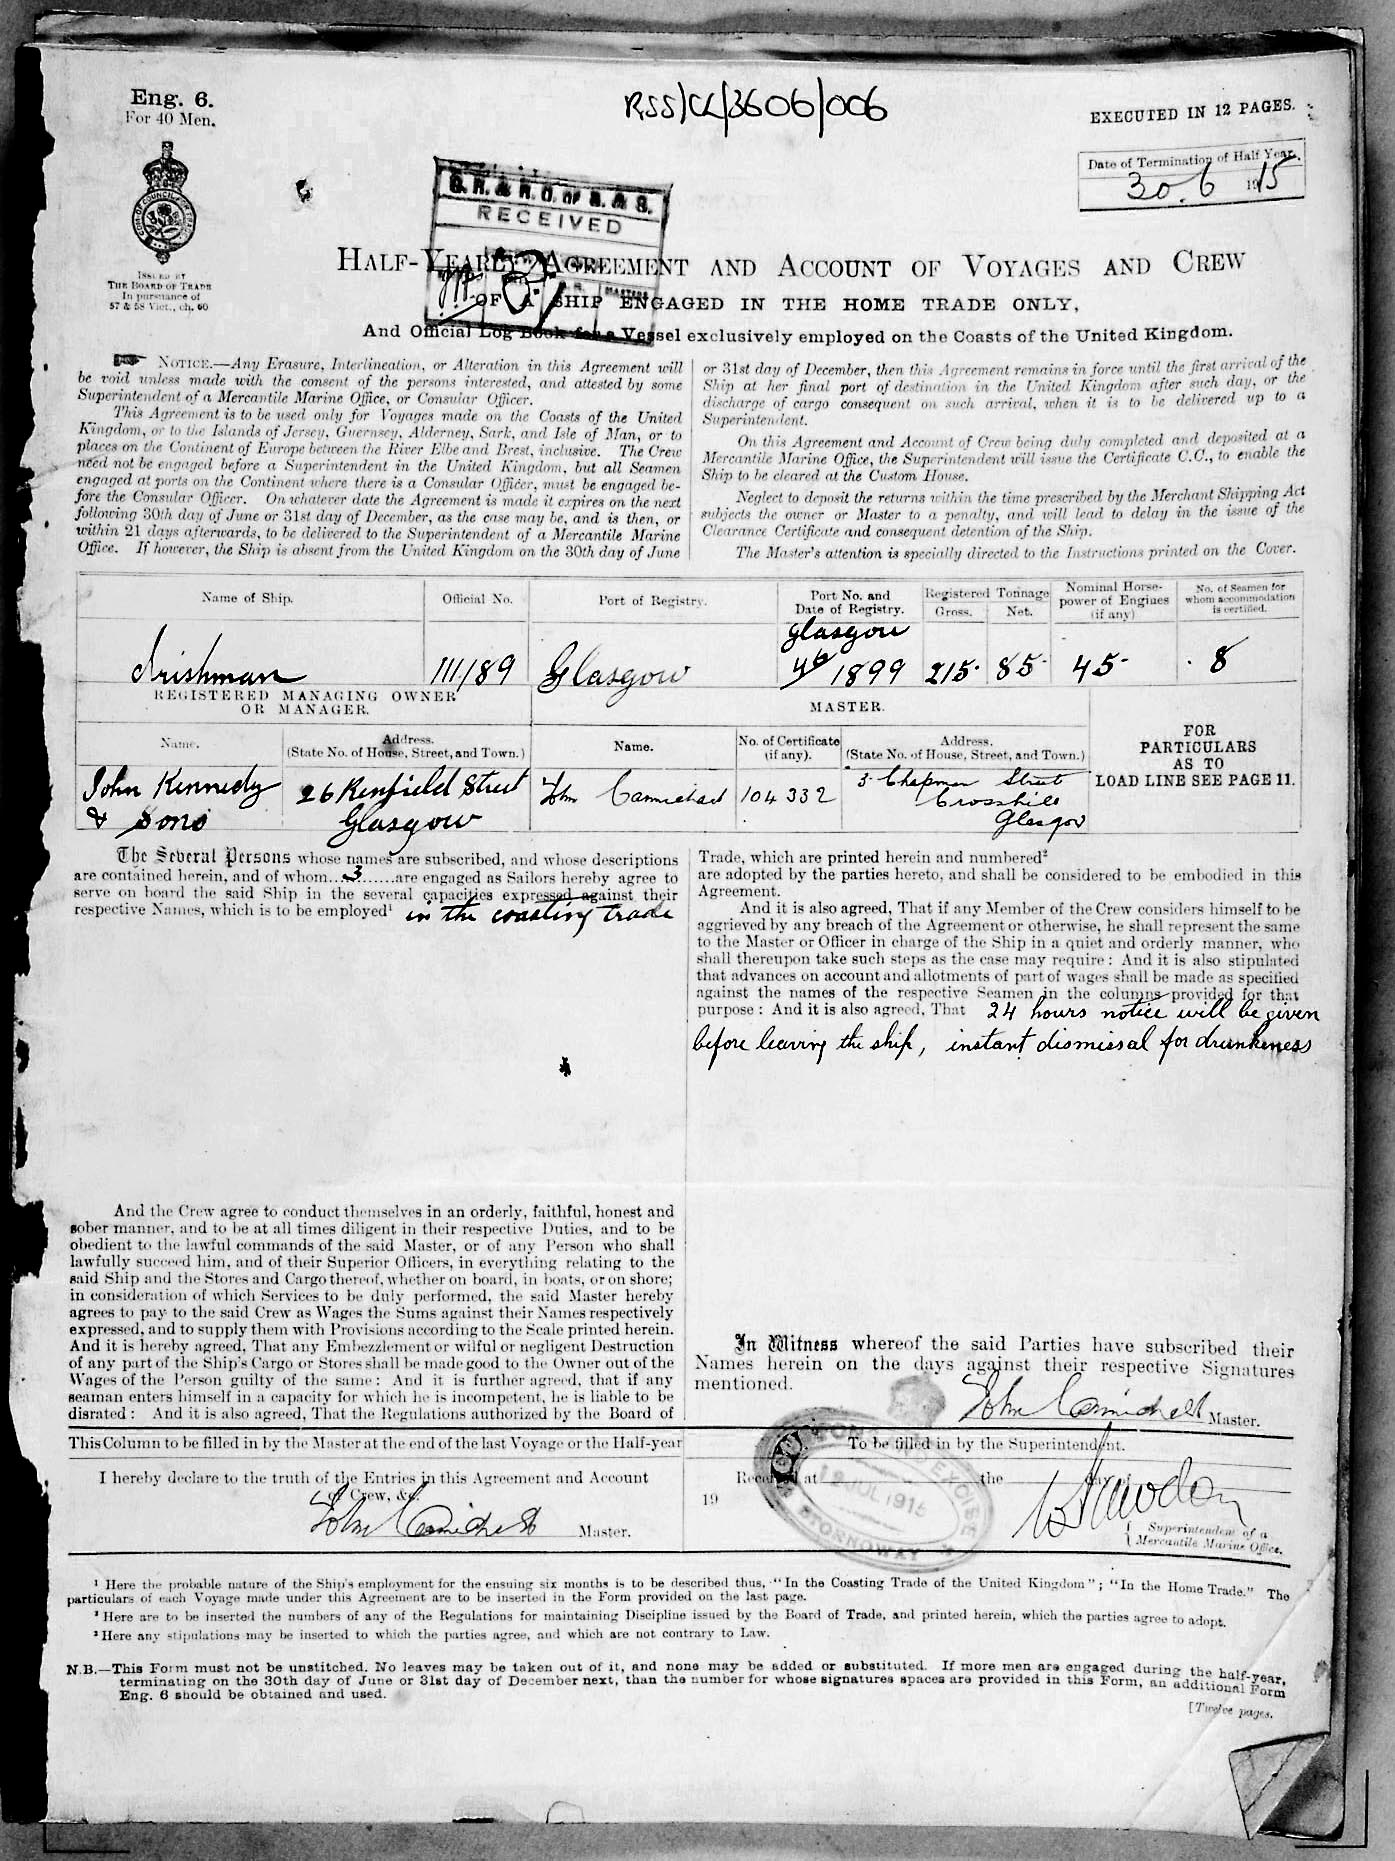 Eng. 6.
For 40 Men.
RSS/CL/3606/006
EXECUTED IN 12 PAGES.
Date of Termination of Half Year.
30.6 1915
ISSUED BY
THE BOARD OF TRADE
In pursuance of
57 & 58 Vict., ch. 60
RECEIVED
HALF-YEARLY AGREEMENT AND ACCOUNT OF VOYAGES AND CREW
OF A SHIP ENGAGED IN THE HOME TRADE ONLY,
And Official Log Book for a Vessel exclusively employed on the Coasts of the United Kingdom.
NOTICE.—Any Erasure, Interlineation, or Alteration in this Agreement will
be void unless made with the consent of the persons interested, and attested by some
Superintendent of a Mercantile Marine Office, or Consular Officer.
This Agreement is to be used only for Voyages made on the Coasts of the United
Kingdom, or to the Islands of Jersey, Guernsey, Alderney, Sark, and Isle of Man, or to
places on the Continent of Europe between the River Elbe and Brest, inclusive. The Crew
need not be engaged before a Superintendent in the United Kingdom, but all Seamen
engaged at ports on the Continent where there is a Consular Officer, must be engaged be-
fore the Consular Officer. On whatever date the Agreement is made it expires on the next
following 30th day of June or 31st day of December, as the case may be, and is then, or
within 21 days afterwards, to be delivered to the Superintendent of a Mercantile Marine
Office. If however, the Ship is absent from the United Kingdom on the 30th day of June
or 31st day of December, then this Agreement remains in force until the first arrival of the
Ship at her final port of destination in the United Kingdom after such day, or the
discharge of cargo consequent on such arrival, when it is to be delivered up to a
Superintendent.
On this Agreement and Account of Crew being duly completed and deposited at a
Mercantile Marine Office, the Superintendent will issue the Certificate C.C., to enable the
Ship to be cleared at the Custom House.
Neglect to deposit the returns within the time prescribed by the Merchant Shipping Act
subjects the owner or Master to a penalty, and will lead to delay in the issue of the
Clearance Certificate and consequent detention of the Ship.
The Master's attention is specially directed to the Instructions printed on the Cover.
Name of Ship. Official No. Port of Registry. Port No. and Date of Registry. Registered Tonnage Gross. Net. Nominal Horse-power of Engines (if any) No. of Seamen for whom accommodation is certified.
Irishman 111189 Glasgow Glasgow 46/1899 215 85 45 8
REGISTERED MANAGING OWNER
OR MANAGER.
MASTER.
Name. Address. (State No. of House, Street, and Town.) Name. No. of Certificate (if any). Address. (State No. of House, Street, and Town.)
FOR
PARTICULARS
AS TO
LOAD LINE SEE PAGE 11.
John Kennedy 26 Renfield Street John Carmichael 104332 3 Chapman Street
& Sons Glasgow Crosshill
Glasgow
The Several Persons whose names are subscribed, and whose descriptions
are contained herein, and of whom...3......are engaged as Sailors hereby agree to
serve on board the said Ship in the several capacities expressed against their
respective Names, which is to be employed¹ in the coasting trade
And the Crew agree to conduct themselves in an orderly, faithful, honest and
sober manner, and to be at all times diligent in their respective Duties, and to be
obedient to the lawful commands of the said Master, or of any Person who shall
lawfully succeed him, and of their Superior Officers, in everything relating to the
said Ship and the Stores and Cargo thereof, whether on board, in boats, or on shore;
in consideration of which Services to be duly performed, the said Master hereby
agrees to pay to the said Crew as Wages the Sums against their Names respectively
expressed, and to supply them with Provisions according to the Scale printed herein.
And it is hereby agreed, That any Embezzlement or wilful or negligent Destruction
of any part of the Ship's Cargo or Stores shall be made good to the Owner out of the
Wages of the Person guilty of the same: And it is further agreed, that if any
seaman enters himself in a capacity for which he is incompetent, he is liable to be
disrated: And it is also agreed, That the Regulations authorized by the Board of
Trade, which are printed herein and numbered²
are adopted by the parties hereto, and shall be considered to be embodied in this
Agreement.
And it is also agreed, That if any Member of the Crew considers himself to be
aggrieved by any breach of the Agreement or otherwise, he shall represent the same
to the Master or Officer in charge of the Ship in a quiet and orderly manner, who
shall thereupon take such steps as the case may require: And it is also stipulated
that advances on account and allotments of part of wages shall be made as specified
against the names of the respective Seamen in the columns provided for that
purpose: And it is also agreed, That 24 hours notice will be given
before leaving the ship, instant dismissal for drunkeness
In Witness whereof the said Parties have subscribed their
Names herein on the days against their respective Signatures
mentioned.
John Carmichael Master.
This Column to be filled in by the Master at the end of the last Voyage or the Half-year
I hereby declare to the truth of the Entries in this Agreement and Account
of Crew, &c.
John Carmichael Master.
To be filled in by the Superintendent.
Received at the day
19
CUSTOMS AND EXCISE
12 JUL 1915
STORNOWAY
Superintendent of a
Mercantile Marine Office.
¹ Here the probable nature of the Ship's employment for the ensuing six months is to be described thus, "In the Coasting Trade of the United Kingdom"; "In the Home Trade." The
particulars of each Voyage made under this Agreement are to be inserted in the Form provided on the last page.
² Here are to be inserted the numbers of any of the Regulations for maintaining Discipline issued by the Board of Trade, and printed herein, which the parties agree to adopt.
³ Here any stipulations may be inserted to which the parties agree, and which are not contrary to Law.
N.B.—This Form must not be unstitched. No leaves may be taken out of it, and none may be added or substituted. If more men are engaged during the half-year,
terminating on the 30th day of June or 31st day of December next, than the number for whose signatures spaces are provided in this Form, an additional Form
Eng. 6 should be obtained and used.
[Twelve pages.